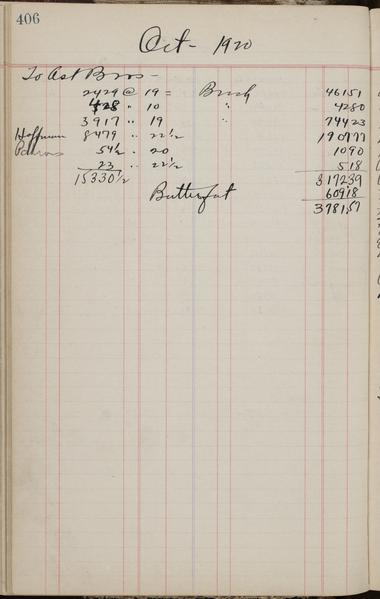 406
Oct - 1920
To Ast Bros -
2429 @ 19 = 46151
428 " 10 " 4280
3917 " 19 " 74423
Hoffman 8479 " 22 1/2 190777
54 1/2 " 20 1090
23 " 22 1/2 518
15330 1/2 317239
Butterfat 60918
378157